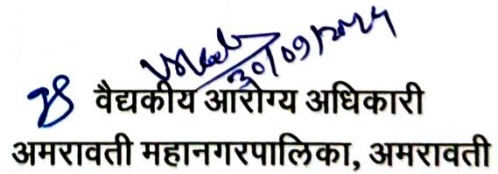 30/09/2024
वैद्यकीय आरोग्य अधिकारी
अमरावती महानगरपालिका, अमरावती